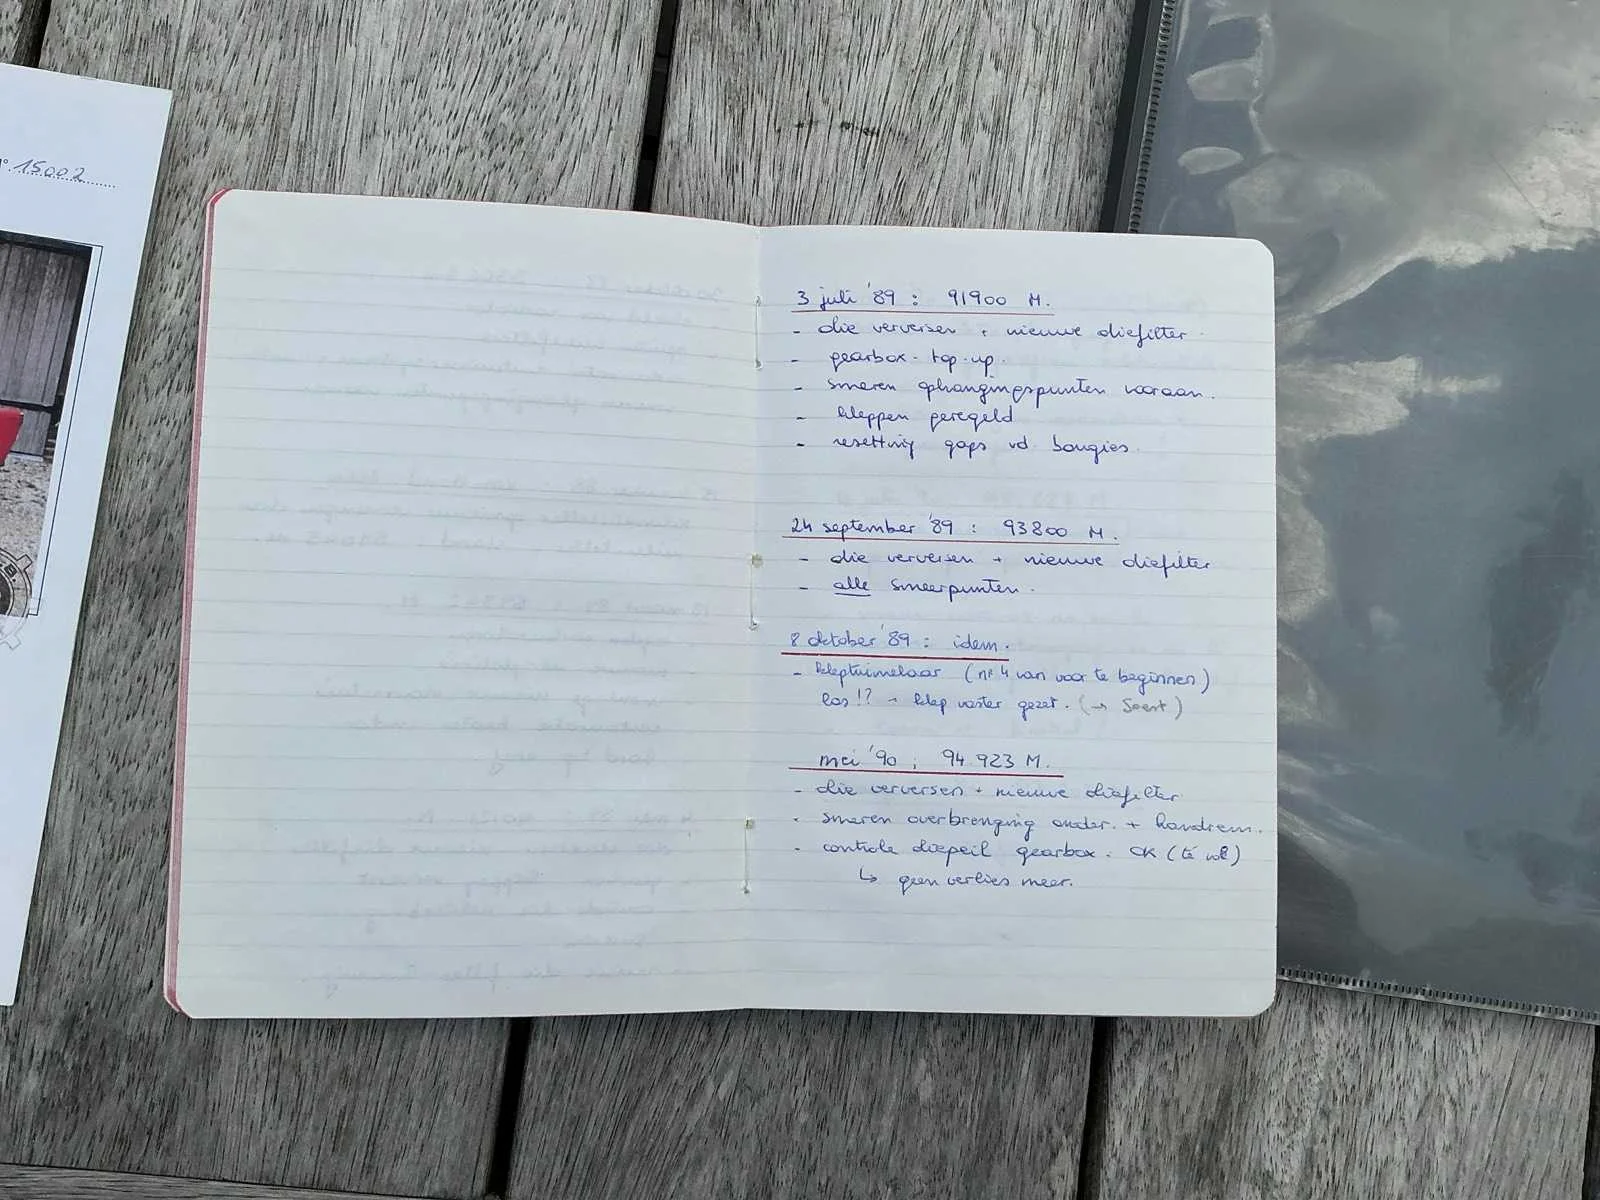 N° 15002
3 juli '89 : 91900 M.
- olie verversen + nieuwe oliefilter
- gearbox - top-up.
- smeren ophangingspunten vooraan.
- kleppen geregeld
- resetting gaps vd bougies.
24 september '89 : 93800 M.
- olie verversen + nieuwe oliefilter
- alle smeerpunten.
8 oktober '89 : idem.
- kleptuimelaar (n° 4 van voor te beginnen)
los !? → klep vaster gezet. (→ Soest)
mei '90 ; 94.923 M.
- olie verversen + nieuwe oliefilter
- smeren overbrenging onder. + handrem.
- controle oliepeil gearbox. OK (té vol)
↳ geen verlies meer.